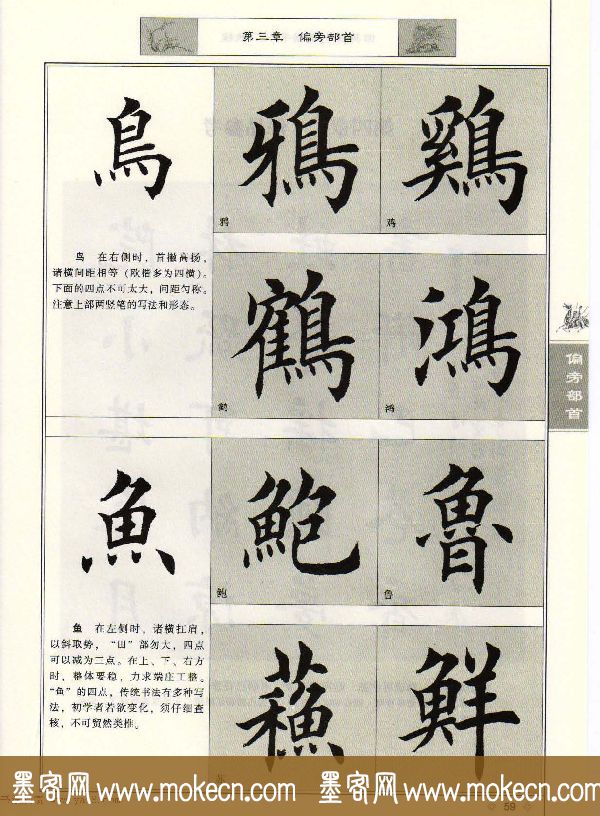 第三章 偏旁部首
鳥
鴉
鷄
鸦
鸡
鸟 在右侧时，首撇高扬，
诸横间距相等（欧楷多为四横）。
下面的四点不可太大，间距匀称。
注意上部两竖笔的写法和形态。
鶴
鴻
鹤
鸿
偏旁部首
魚
鮑
魯
鲍
鲁
鱼 在左侧时，诸横扛肩，
以斜取势，“田”部勿大，四点
可以减为三点。在上、下、右方
时，整体要稳，力求端庄工整。
“鱼”的四点，传统书法有多种写
法，初学者若欲变化，须仔细查
核，不可贸然类推。
蘓
鮮
墨客网 www.mokecn.com 墨客网 www.mokecn.com
59